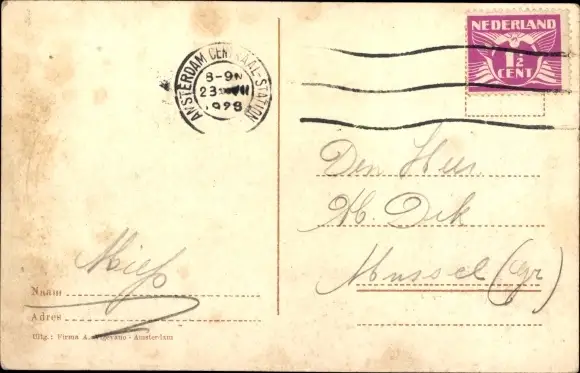 NEDERLAND
1½
CENT
AMSTERDAM CENTRAAL-STATION
8-9N
23 VII
1928
Den Heer
H. Dik
Mussel (Gr)
Miep
Naam
Adres
Uitg.: Firma A. Vigeveno - Amsterdam